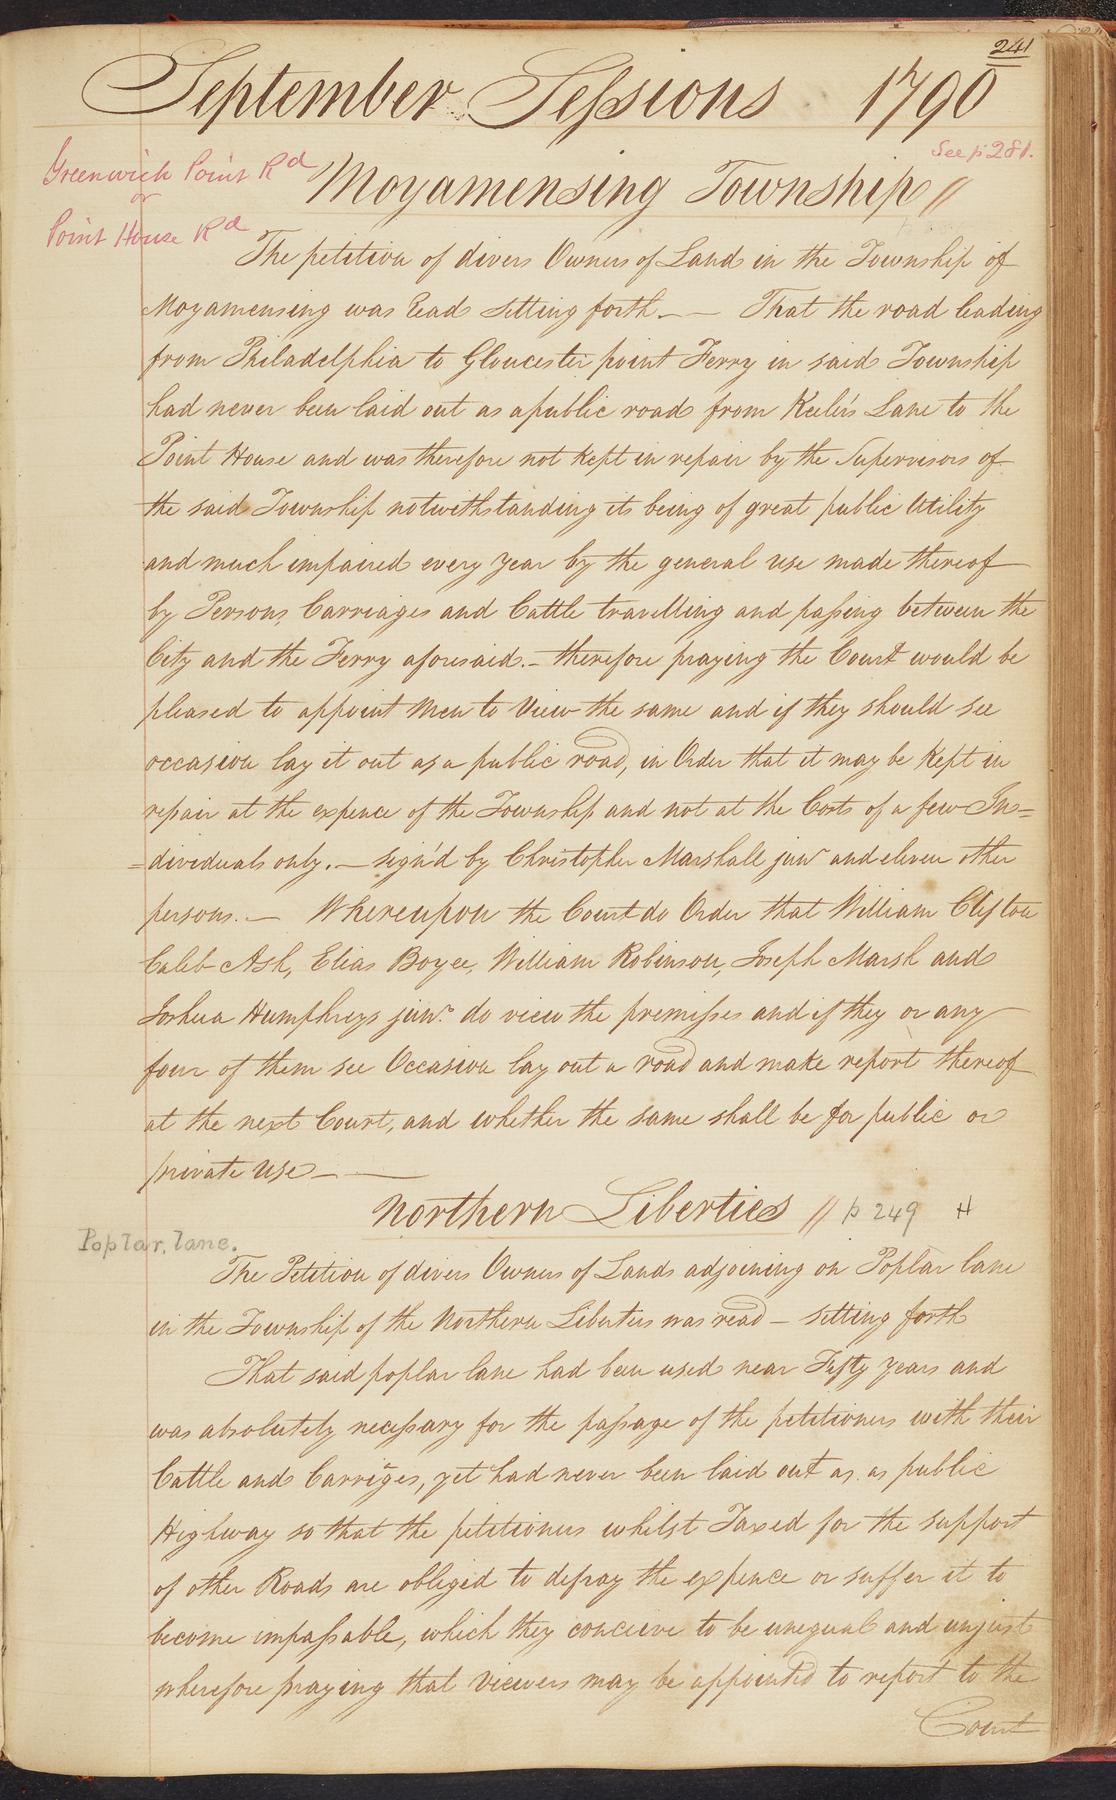 241
September Sessions 1790
See p 281.
Greenwich Point Rd
or
Point House Rd
Moyamensing Township //
The petition of divers Owners of Land in the Township of
Moyamensing was read setting forth. — — That the road leading
from Philadelphia to Gloucester point Ferry in said Township
had never been laid out as a public road from Keeler's Lane to the
Point House and was therefore not kept in repair by the Supervisors of
the said Township notwithstanding its being of great public Utility
and much impaired every year by the general use made thereof
by Persons Carriages and Cattle travelling and passing between the
City and the Ferry aforesaid. – therefore praying the Court would be
pleased to appoint Men to View the same and if they should see
occasion lay it out as a public road, in Order that it may be kept in
repair at the expence of the Township and not at the Costs of a few In=
=dividuals only. — sign'd by Christopher Marshall junr and eleven other
persons. — Whereupon the Court do Order that William Clifton
Caleb Ash, Elias Boyce, William Robinson, Joseph Marsh and
Joshua Humphreys junr. do view the premisses and if they or any
four of them see Occasion lay out a road and make report thereof
at the next Court, and whether the same shall be for public or
private use — —
Northern Liberties // p 249 H
Poplar, lane.
The Petition of divers Owners of Lands adjoining on Poplar lane
in the Township of the Northern Liberties was read – setting forth
That said poplar lane had been used near Fifty years and
was absolutely necessary for the passage of the petitioners with their
Cattle and Carriges, yet had never been laid out as as public
Highway so that the petitioners whilst Taxed for the support
of other Roads are obliged to defray the expence or suffer it to
become impassable, which they conceive to be unequal and unjust
wherefore praying that viewers may be appointed to report to the
Court